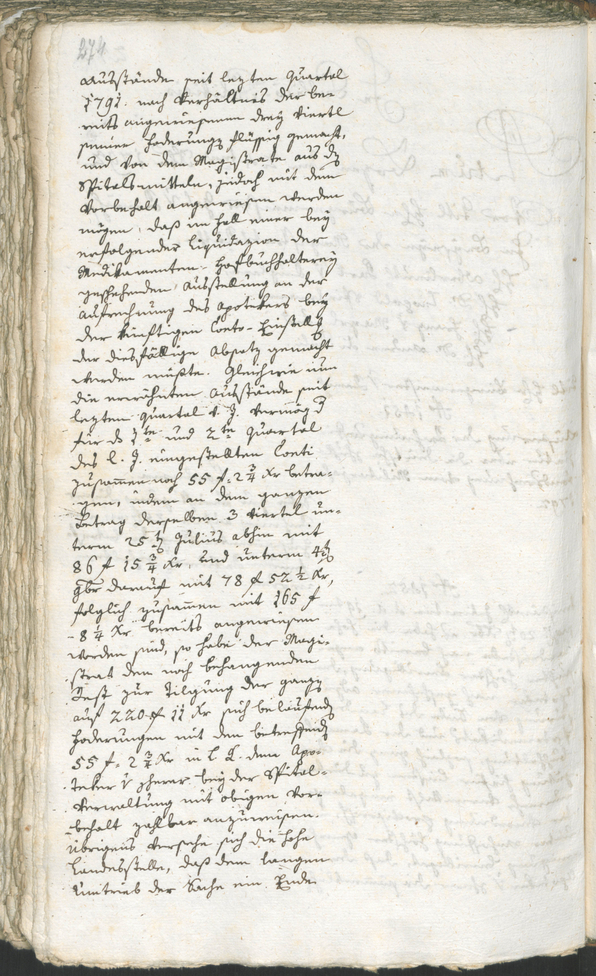 274
Ausstände seit lezten Quartal
1791. nach Verhältnis der be-
reits angewiesenen drey Viertl
seiner Foderungs flüssig gemacht,
und von dem Magistrate aus ds
Spitalsmitteln, jedoch mit dem
Vorbehalt angewiesen werden
mögen, daß im Fall einer bey
erfolgender Liquidazion der
Medikamenten-Hofbuchhalterey
geschehenden Ausstellung an der
Aufrechnung des Apotekers bey
der künftigen Conto-Einstellg
der diesfällige Absatz gemacht
werden müßte. Gleichwie nun
die erwehnten Ausstände seit
lezten Quartal v. J. vermög d
für ds 1te und 2te Quartal
des l. J. eingestellten Conti
zusammen noch 55 f. 2 3/4 Xr betra-
gen, indem an dem ganzen
Betrag derselben 3 Viertel un-
term 25ten Julius abhin mit
86 f 15 3/4 Xr, und unterm 4ten
gbr darauf mit 78 f 52 1/2 Xr,
folglich zusammen mit 165 f
- 8 1/4 Xr bereits angewiesen
worden sind, so habe der Magi-
strat dem noch behangenden
Rest zur Tilgung der ganzen
auf 220 f 11 Xr sich belaufend
Foderungen mit den betreffend
55 f. 2 3/4 Xr in l. Q. dem Apo-
teker bey der Spital-
Verwaltung mit obigen Vor-
behalt zahlbar anzuweisen.
Übrigens versehe sich die hohe
Landesstelle, daß dem langen
Umtrieb der Sache ein Ende